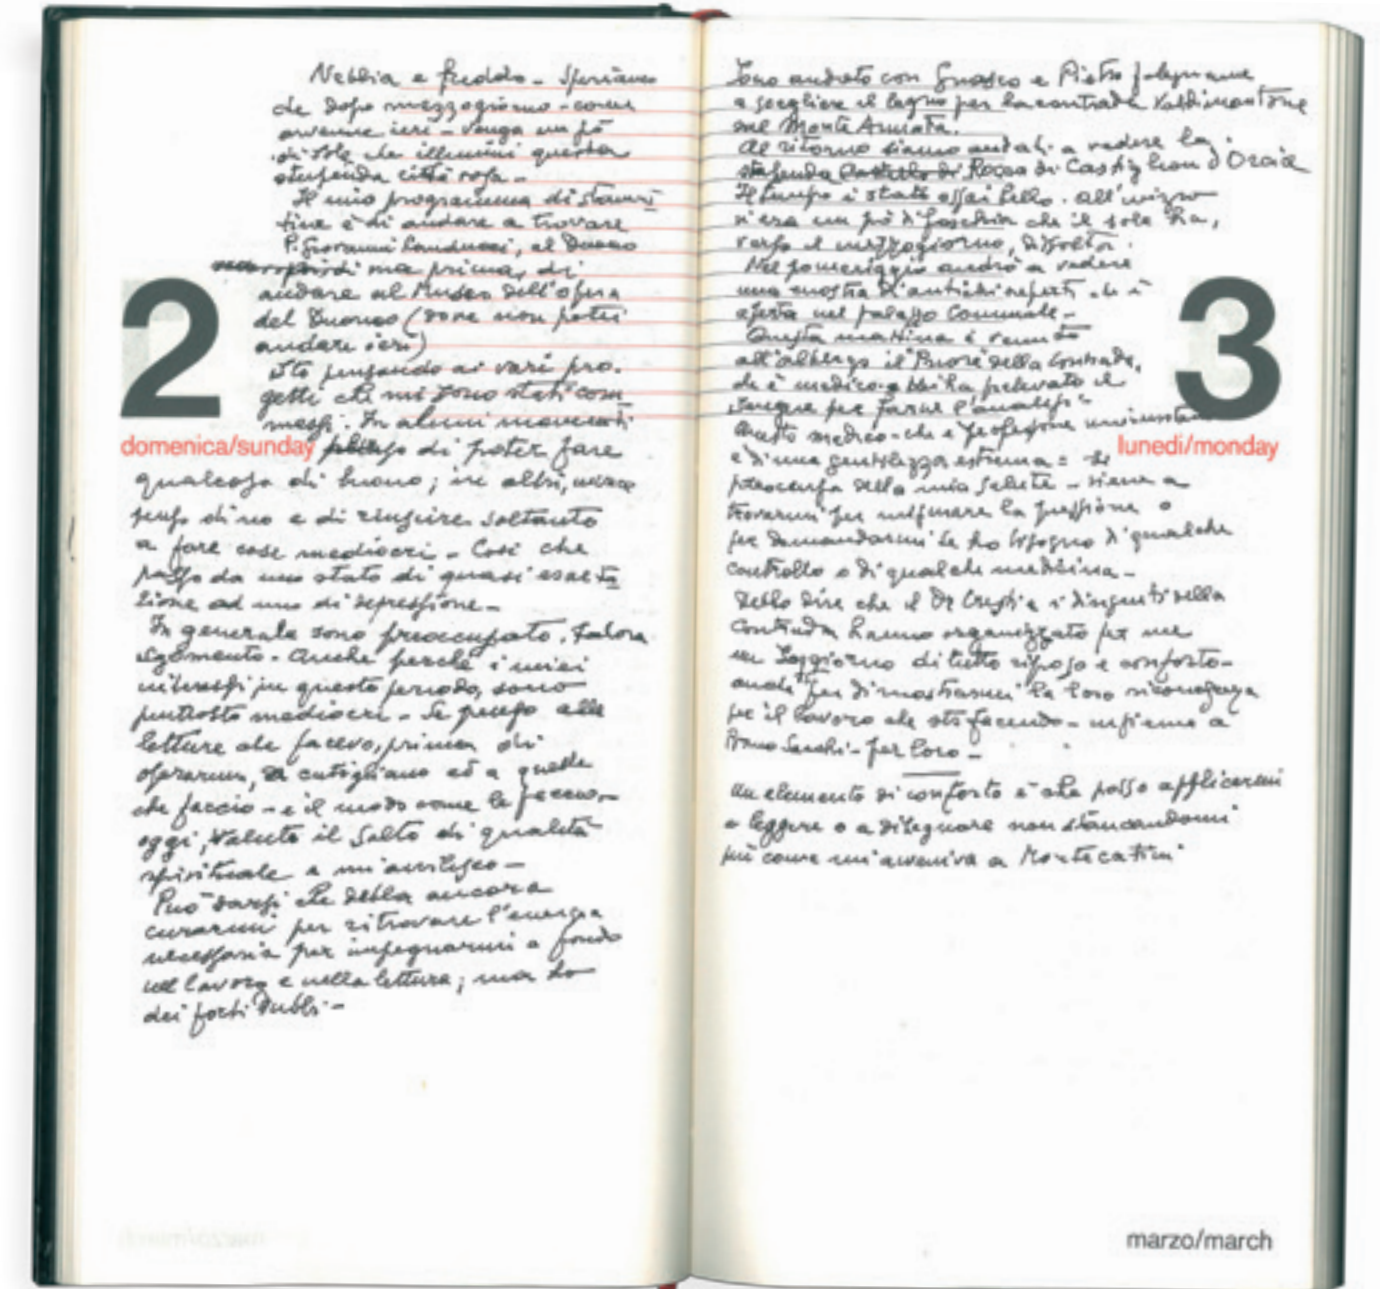 Nebbia e freddo - Speriamo
che dopo mezzogiorno - come
avvenne ieri - venga un pò
di sole che illumini questa
stupenda città rosa -
Il mio programma di stamat
tina è di andare a trovare
P. Giovanni Landucci, al Duomo
ma prima, di
andare al Museo dell'opera
del Duomo (dove non potei
andare ieri)
Sto pensando ai vari pro.
getti che mi sono stati com
messi. In alcuni momenti
2
domenica/sunday
penso di poter fare
qualcosa di buono; in altri, invece
penso di no e di riuscire soltanto
a fare cose mediocri - Così che
passo da uno stato di quasi esalta
zione ad uno di depressione -
In generale sono preoccupato. Talora
sgomento. Anche perché i miei
interessi, in questo periodo, sono
piuttosto mediocri - Se penso alle
letture che facevo, prima di
operarmi, a cutigliano ed a quelle
che faccio - e il modo come le facevo -
oggi, valuto il salto di qualità
spirituale e mi avvilisco -
Può darsi che debba ancora
curarmi per ritrovare l'energia
necessaria per impegnarmi a fondo
nel lavoro e nella lettura; ma ho
dei forti dubbi -
Sono andato con Guasco e Pietro falegname
a scegliere il legno per la contrada Valdimontone
sul Monte Amiata.
Al ritorno siamo andati a vedere la
stupenda Castello di Rocca di Castiglion d'Orcia
Il tempo è stato assai bello. All'inizio
c'era un pò di foschia che il sole ha,
verso il mezzogiorno, dissolto.
Nel pomeriggio andrò a vedere
una mostra di antichi reperti che è
aperta nel palazzo Comunale -
Questa mattina è venuto
all'albergo il Priore della Contrada,
che è medico e mi ha prelevato il
sangue per farne l'analisi -
3
lunedì/monday
Questo medico - che è professore universitario
è di una gentilezza estrema = si
preoccupa della mia salute - viene a
trovarmi per misurare la pressione o
per domandarmi se ho bisogno di qualche
controllo o di qualche medicina -
Debbo dire che il Dr e i dirigenti della
contrada hanno organizzato per me
un soggiorno di tutto riposo e conforto -
anche per dimostrarmi la loro riconoscenza
per il lavoro che sto facendo - insieme a
Bruno Sacchi - per loro -
Un elemento di conforto è che posso applicarmi
a leggere o a disegnare non stancandomi
più come mi avveniva a Montecatini
marzo/march